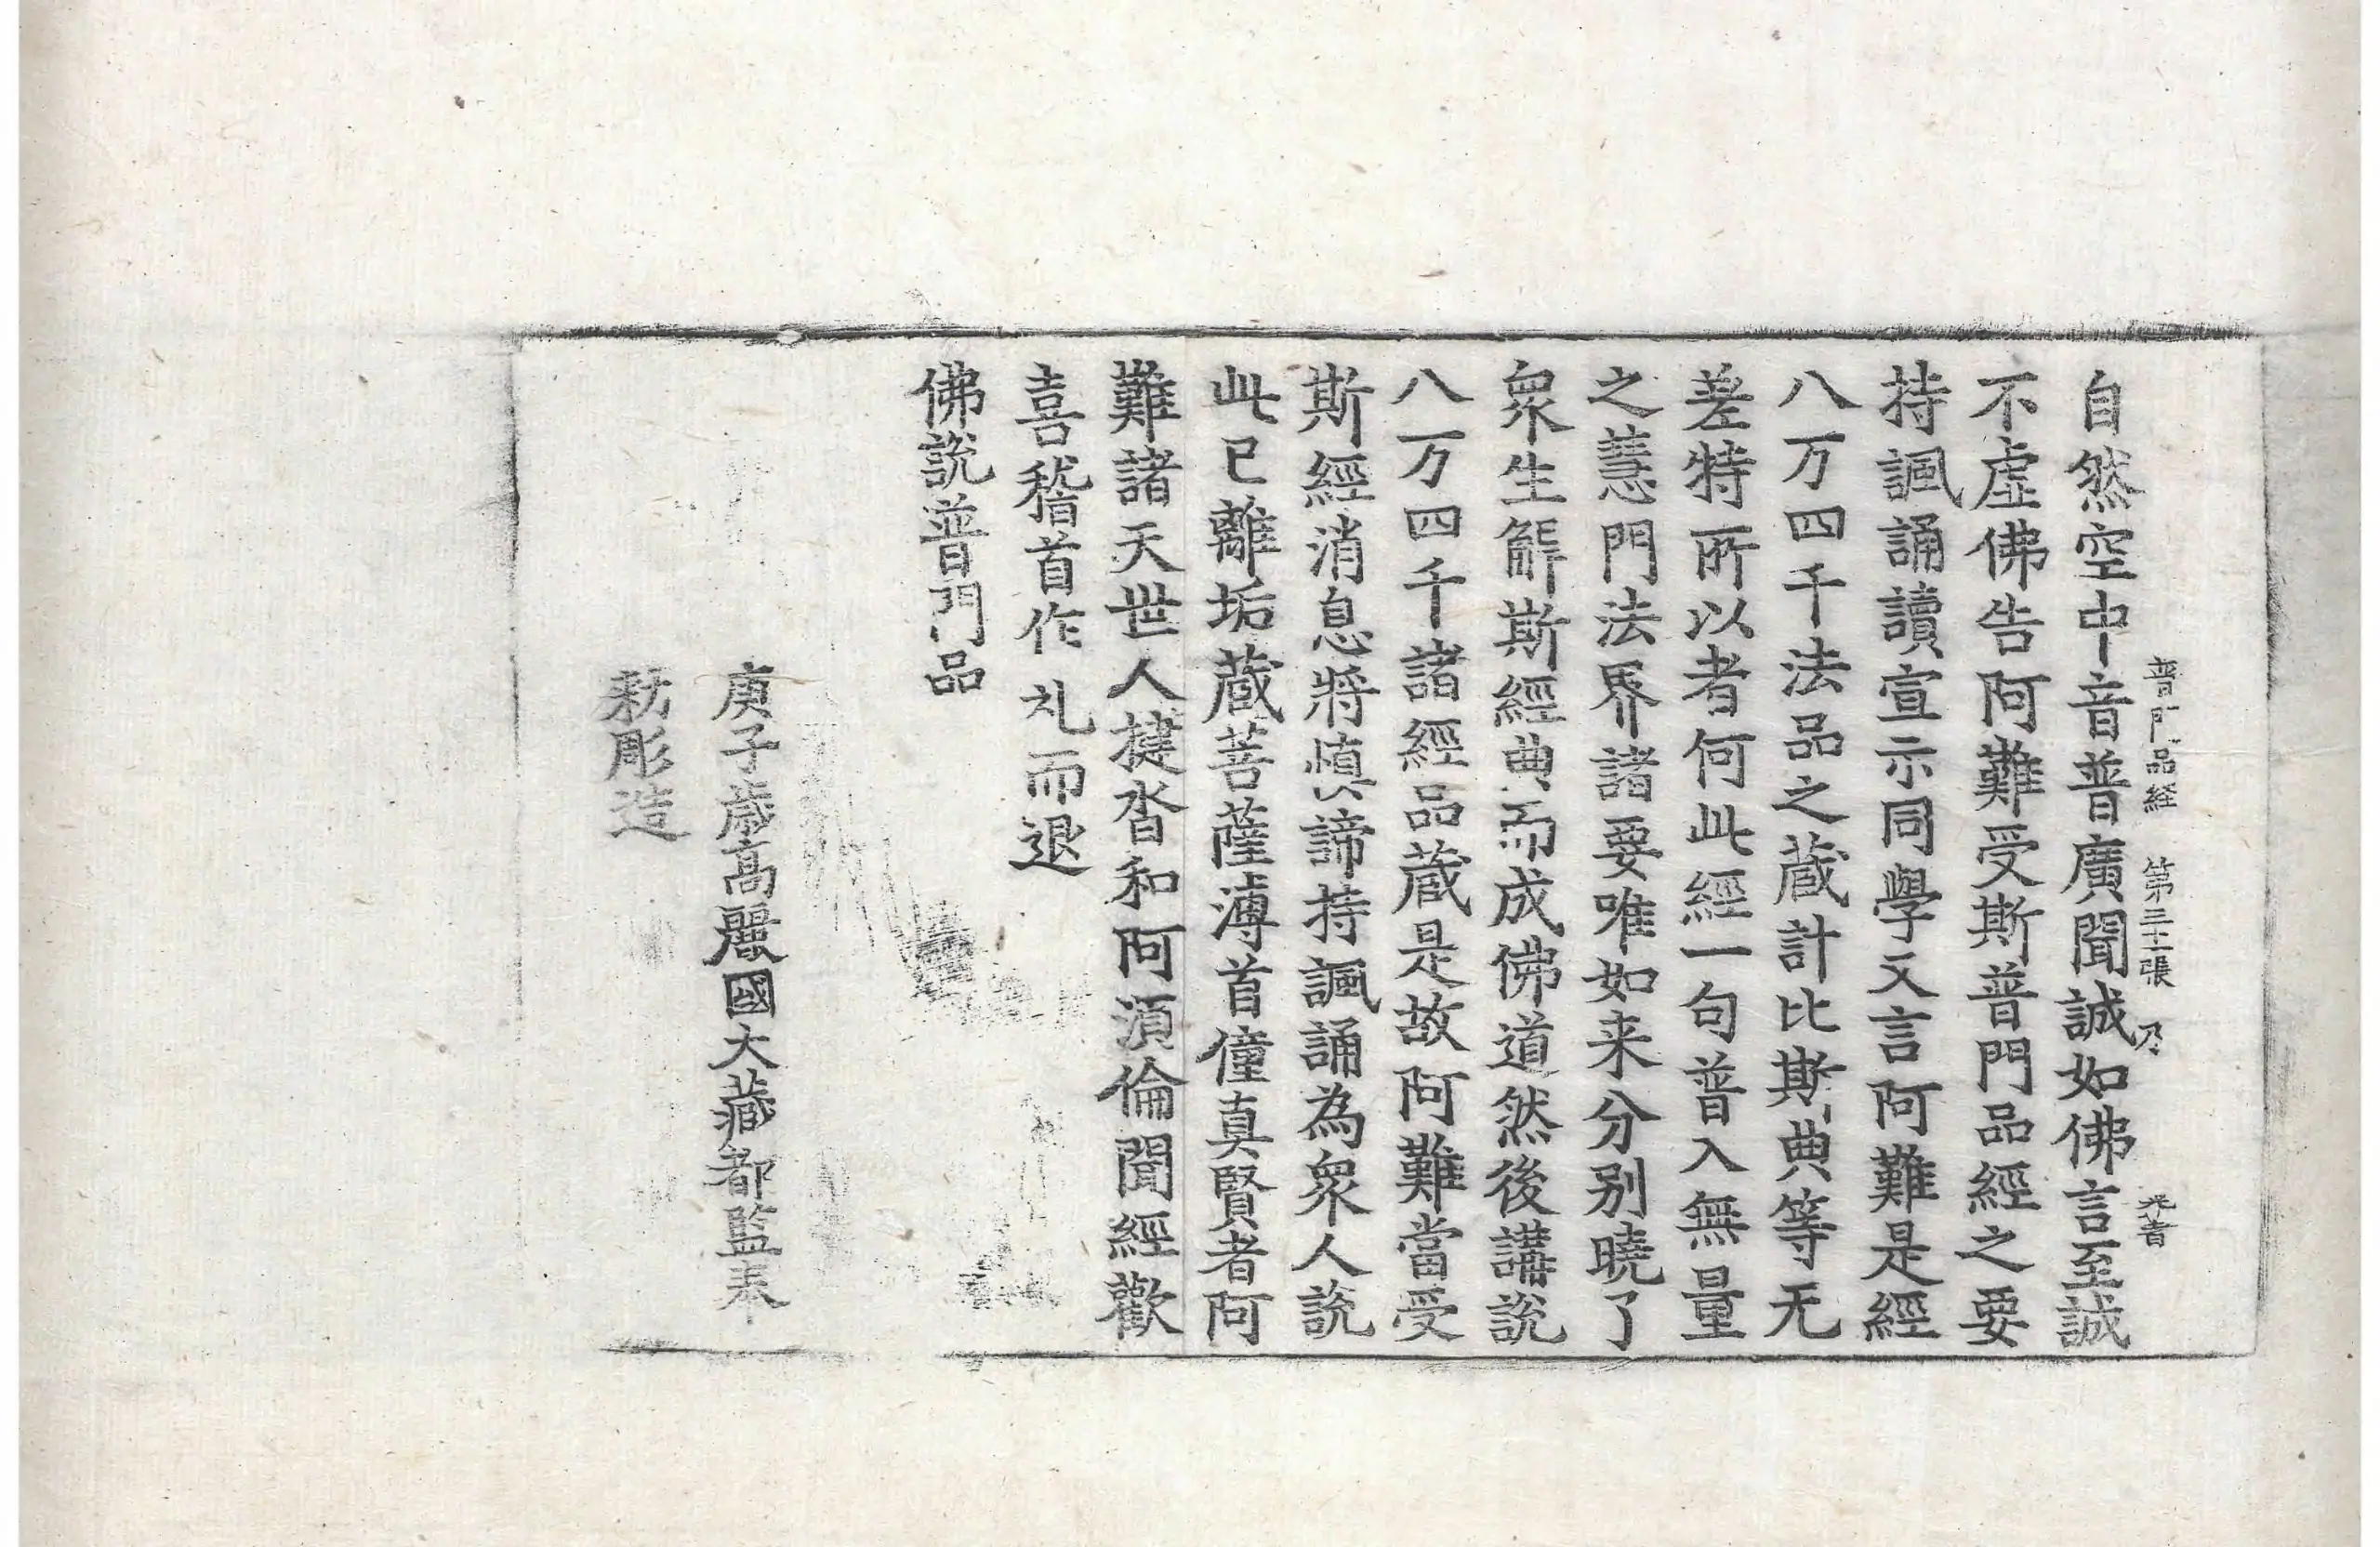 普門品経 第三十一張 乃 光書
自然空中音普廣聞誠如佛言至誠
不虛佛告阿難受斯普門品經之要
持諷誦讀宣示同學又言阿難是經
八万四千法品之蔵計比斯典等无
差特所以者何此經一句普入無量
之慧門法界諸要唯如来分别曉了
衆生解斯經典而成佛道然後講說
八万四千諸經品蔵是故阿難當受
斯經消息將慎諦持諷誦為衆人說
此已離垢蔵菩薩溥首僮真賢者阿
難諸天世人揵沓和阿須倫聞經歡
喜稽首作礼而退
佛說普門品
庚子歳高麗國大藏都監奉
勑彫造